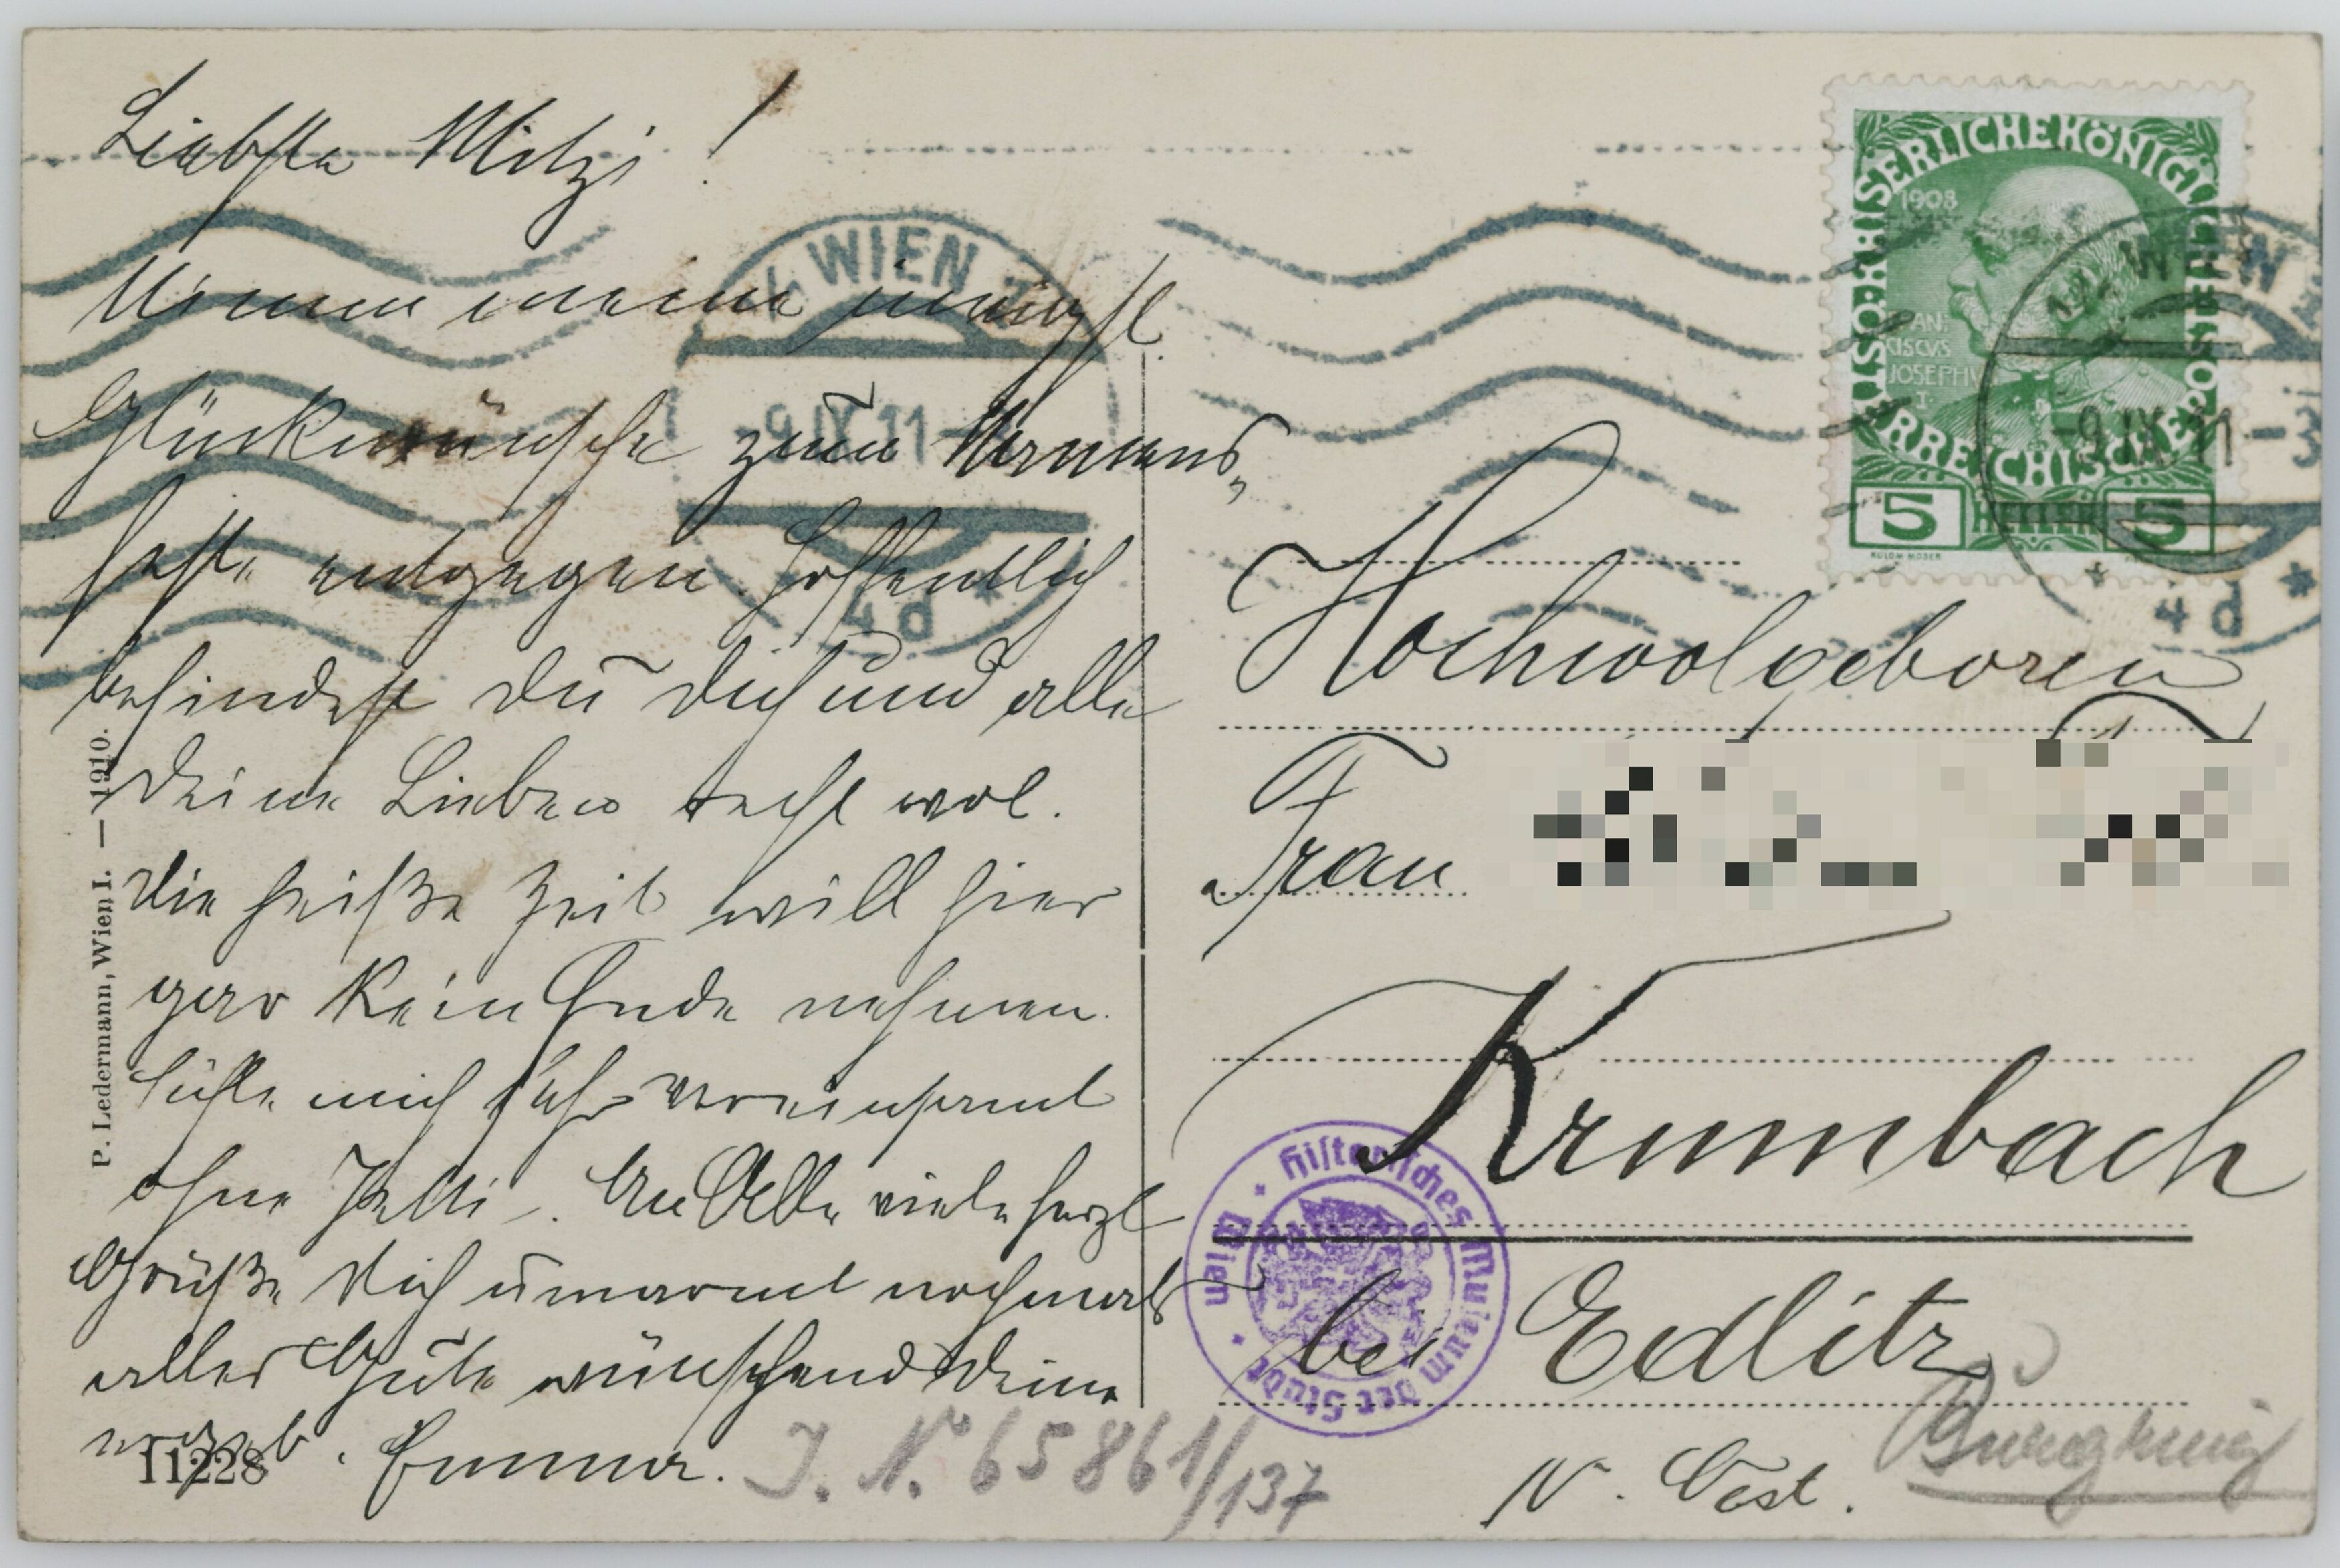 Liebste Mitzi !
Nimm meine innigst.
Glückwünsche zum Namens„
feste entgegen. Hoffentlich
befindest Du Dich und alle
Deine Lieben recht wol.
Die heiße Zeit will hier
gar kein Ende nehmen.
Fühle mich sehr vereinsamt
ohne . An Alle viele herzl
Grüße Dich umarmt nochmals
alles Gute wünschend Deine
Emma.
11228
J. No 65861/137
P. Ledermann, Wien I. — 1910.
WIEN
-9.IX.11-
4d *
KAISERLICHE KÖNIGLICHE ÖSTERREICHISCHE POST
1908
FRAN
CISCVS
JOSEPHVS
I
5 HELLER 5
KOLOM·MOSER
WIEN
-9.IX.11-3
* 4d *
Hochwolgeboren
Frau
Krumbach
bei Edlitz
N. Oest.
Historisches Museum der Stadt Wien